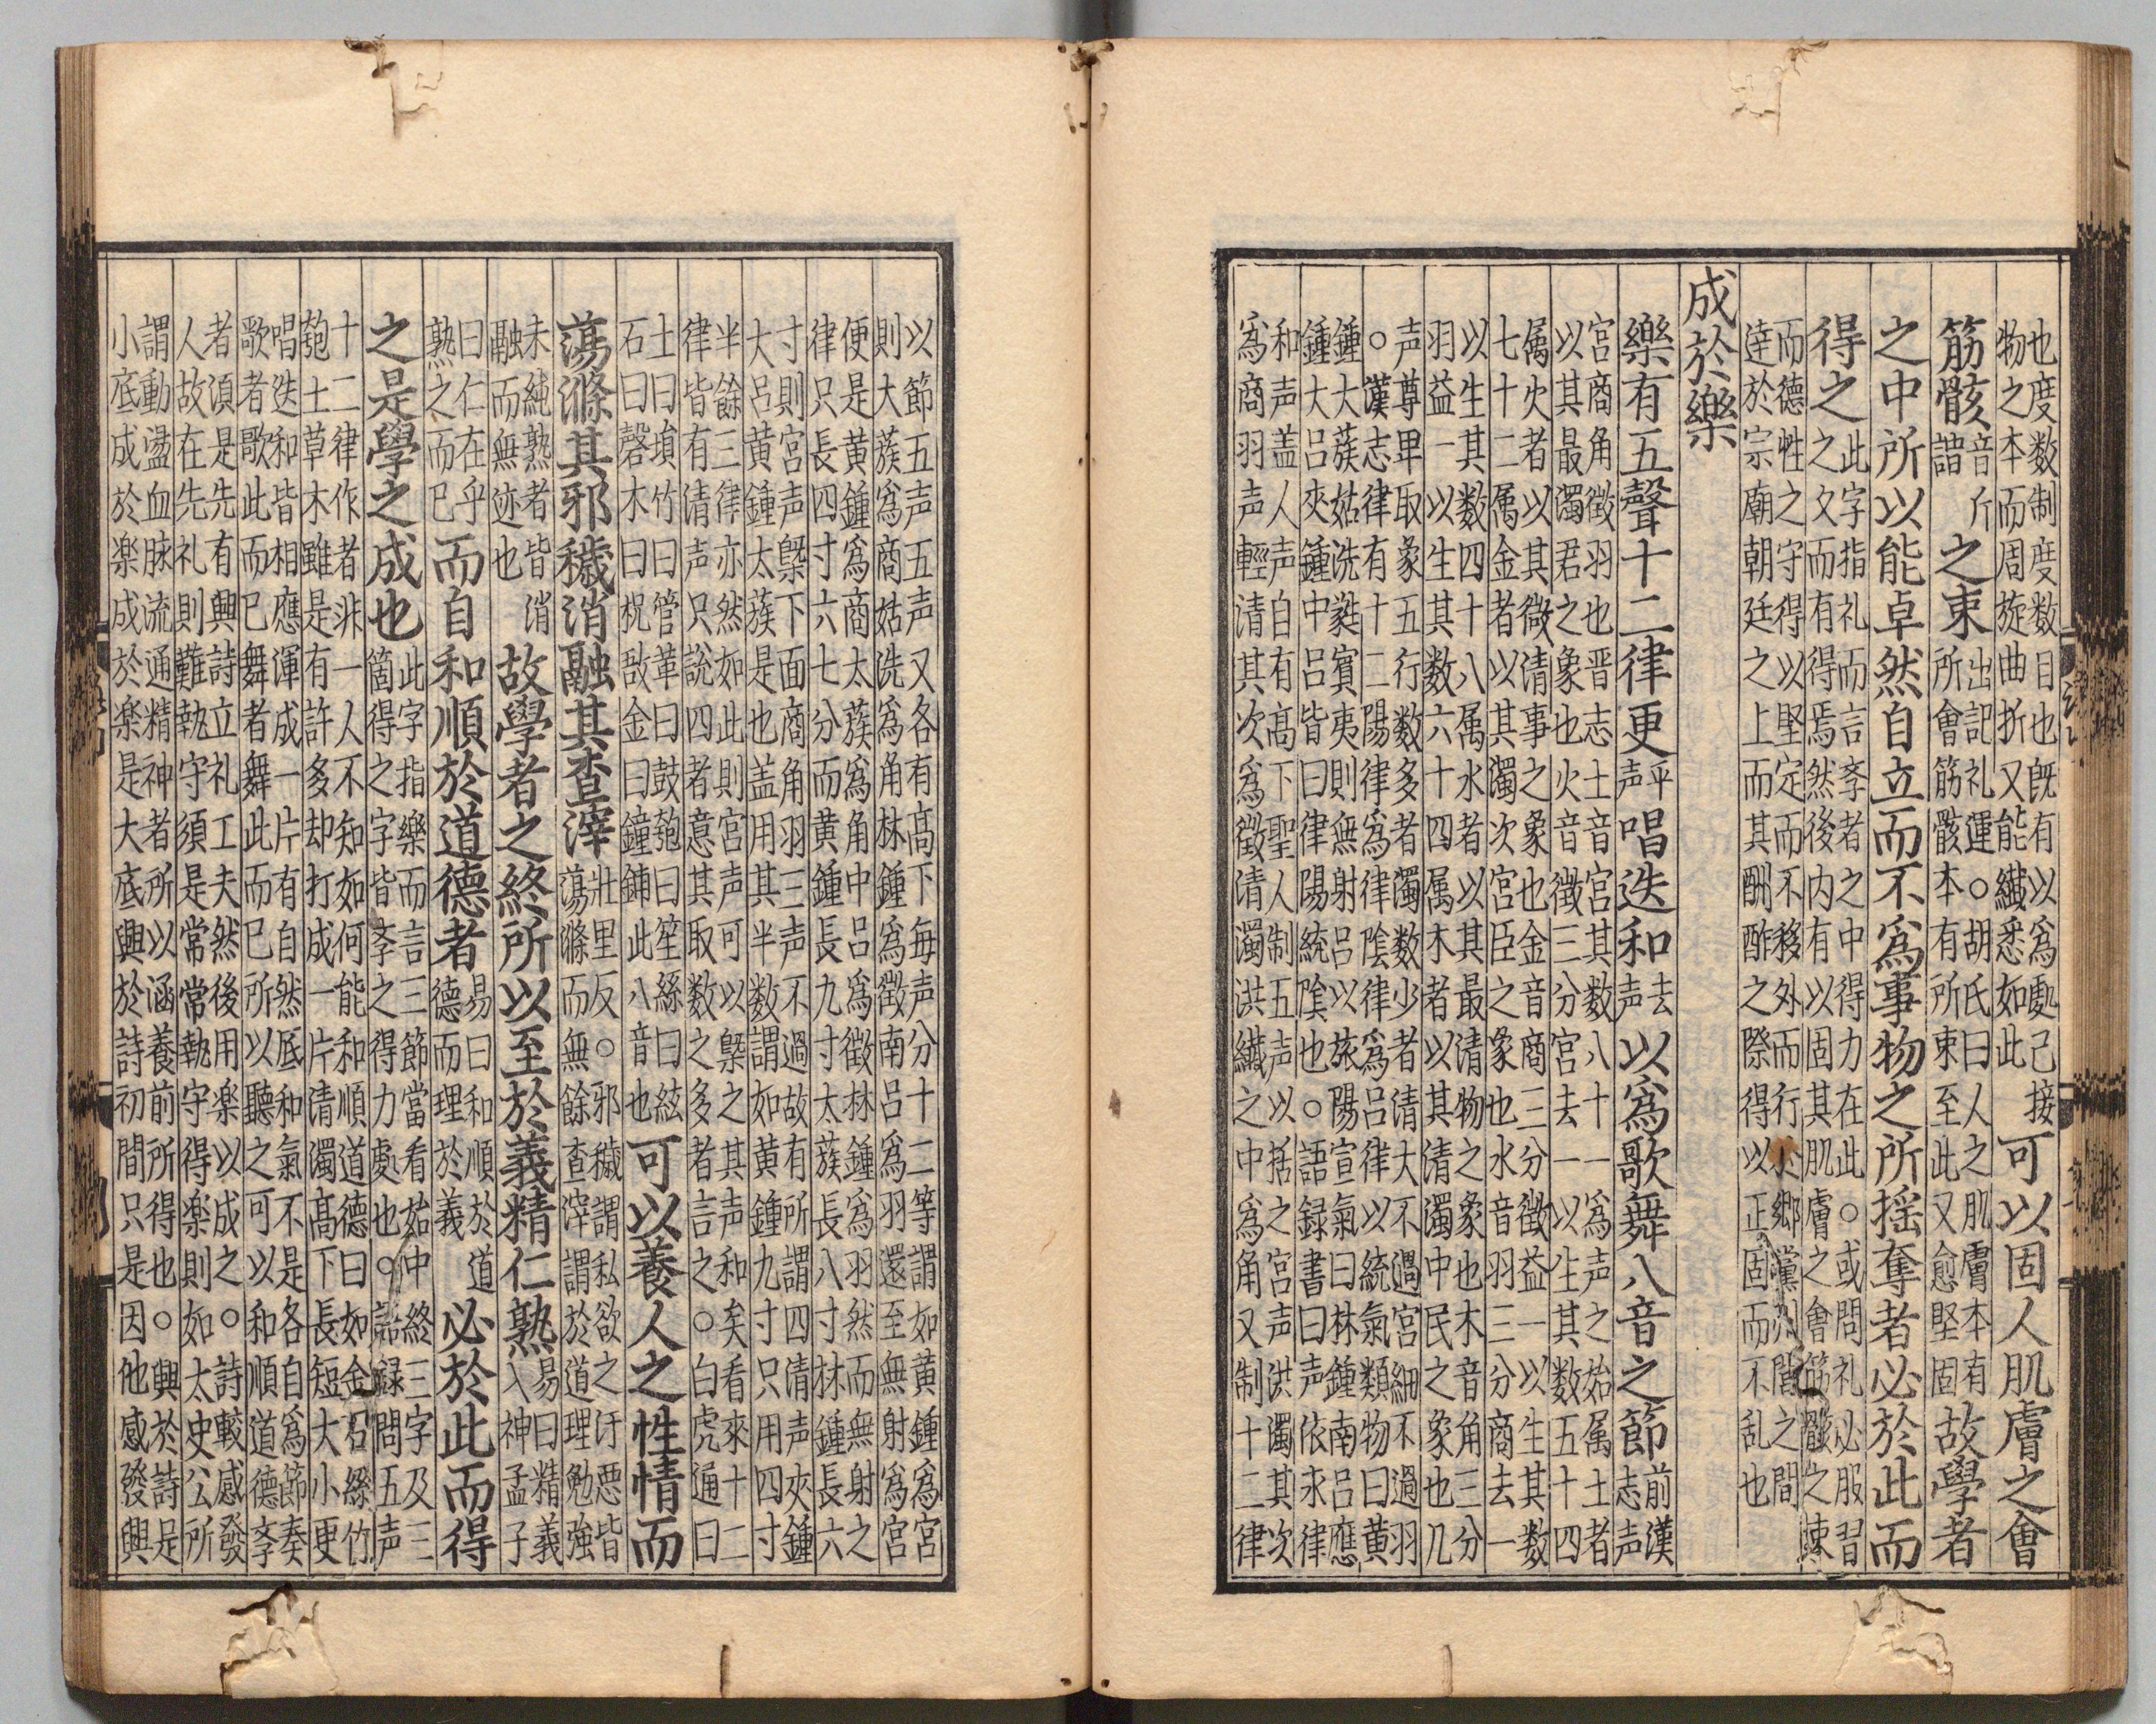 也度数制度数目也既有以為處己接
物之本而周旋曲折又能纎悉如此
可以固人肌膚之會
筋骸音斤諧之束出記礼運○胡氏曰人之肌膚本有
所會筋骸本有所束至此又愈堅固故學者
之中所以能卓然自立而不為事物之所摇奪者必於此而
得之此字指礼而言斈者之中得力在此○或問礼必服習
之久而有得焉然後内有以固其肌膚之會筋骸之束
而德性之守得以堅定而不移外而行於鄉黨州閭之間
達於宗廟朝廷之上而其酬酢之際得以正固而不乱也
成於樂
樂有五聲十二律更平声唱迭和去声以為歌舞八音之節前漢志声
宮商角徵羽也晋志土音宮其数八十一為声之始属土者
以其最濁君之象也火音徵三分宮去一以生其数五十四
属火者以其微清事之象也金音商三分徵益一以生其数
七十二属金者以其濁次宮臣之象也水音羽三分商去一
以生其数四十八属水者以其最清物之象也木音角三分
羽益一以生其数六十四属木者以其清濁中民之象也凡
声尊卑取象五行数多者濁数少者清大不過宮細不過羽
○漢志律有十二陽律為律陰律為吕律以統氣類物曰黄
鍾大蔟姑洗蕤賓夷則無射吕以旅陽宣氣曰林鍾南吕應
鍾大吕夾鍾中吕皆曰律陽統陰也○語録書曰声依永律
和声盖人声自有高下聖人制五声以括之宮声洪濁其次
為商羽声輕清其次為徵清濁洪纎之中為角又制十二律
以節五声五声又各有高下每声分十二等謂如黄鍾為宮
則大蔟為商姑洗為角林鍾為徵南吕為羽還至無射為宮
便是黄鍾為商太蔟為角中吕為徵林鍾為羽然而無射之
律只長四寸六七分而黄鍾長九寸太蔟長八寸林鍾長六
寸則宮声槩下面商角羽三声不過故有所謂四清声夾鍾
大吕黄鍾太蔟是也盖用其半数謂如黄鍾九寸只用四寸
半餘三律亦然如此則宮声可以槩之其声和矣看來十二
律皆有清声只說四者意其取数之多者言之○白虎通曰
土曰塤竹曰管革曰鼓匏曰笙絲曰絃
石曰磬木曰柷敔金曰鐘鎛此八音也
可以養人之性情而
蕩滌其邪穢消融其查滓壮里反○邪穢謂私欲之汙悪皆
蕩滌而無餘查滓謂於道理勉強
未純熟者皆消
融而無迹也
故學者之終所以至於義精仁熟易曰精義
入神孟子
曰仁在乎
熟之而已
而自和順於道德者易曰和順於道
德而理於義
必於此而得
之是學之成也此字指樂而言三節當看始中終三字及三
箇得之字皆斈之得力處也○語録問五声
十二律作者非一人不知如何能和順道德曰如金石絲竹
匏土草木雖是有許多却打成一片清濁高下長短大小更
唱迭和皆相應渾成一片有自然底和氣不是各自為節奏
歌者歌此而已舞者舞此而已所以聽之可以和順道德斈
者湏是先有興詩立礼工夫然後用楽以成之○詩較感發
人故在先礼則難執守須是常常執守得楽則如太史公所
謂動盪血脉流通精神者所以涵養前所得也○興於詩是
小底成於楽成於楽是大底興於詩初間只是因他感發興